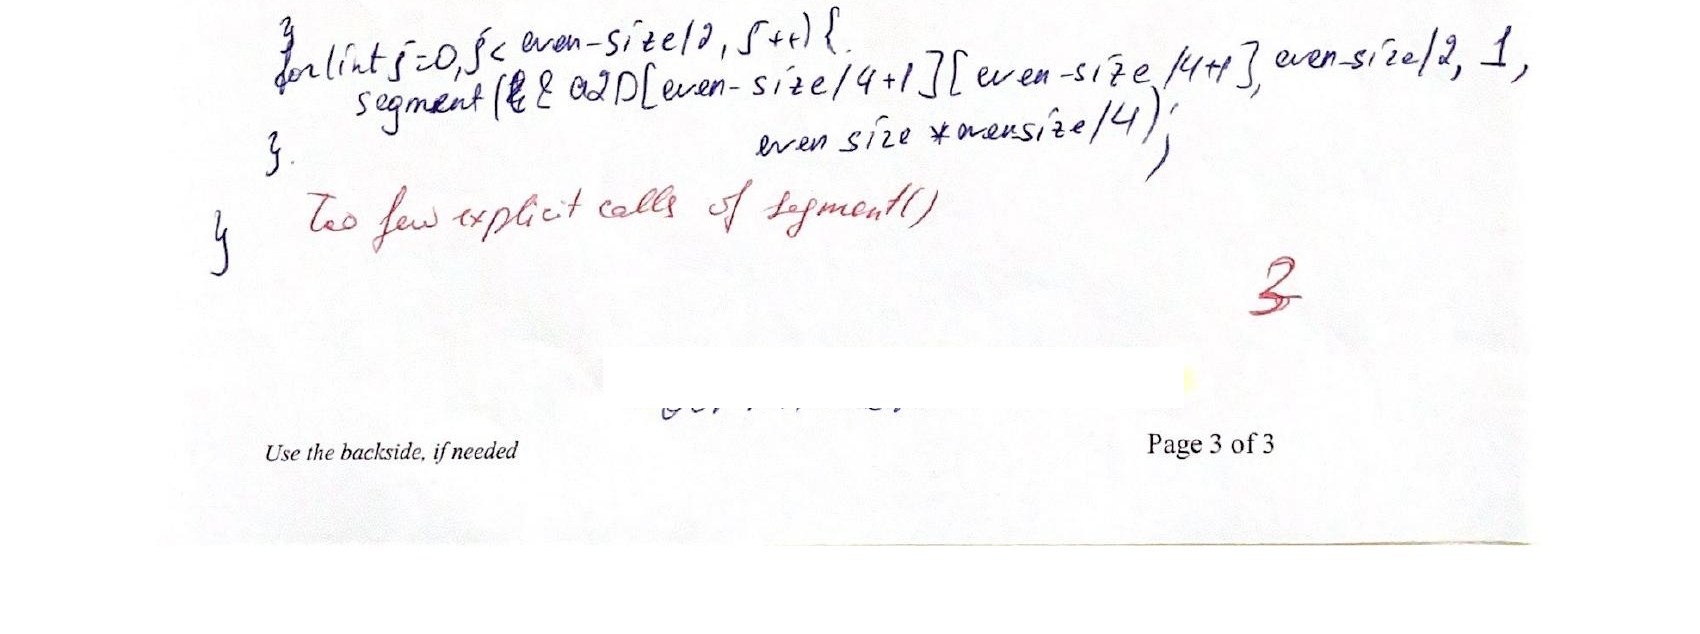 }
for(int j=0, j< even-size/2, j++) {
segment(& a2D[even-size/4+1][even-size/4+1], even-size/2, 1,
even size * evensize/4);
}.
Too few explicit calls of segment()
}
3
Use the backside, if needed
Page 3 of 3